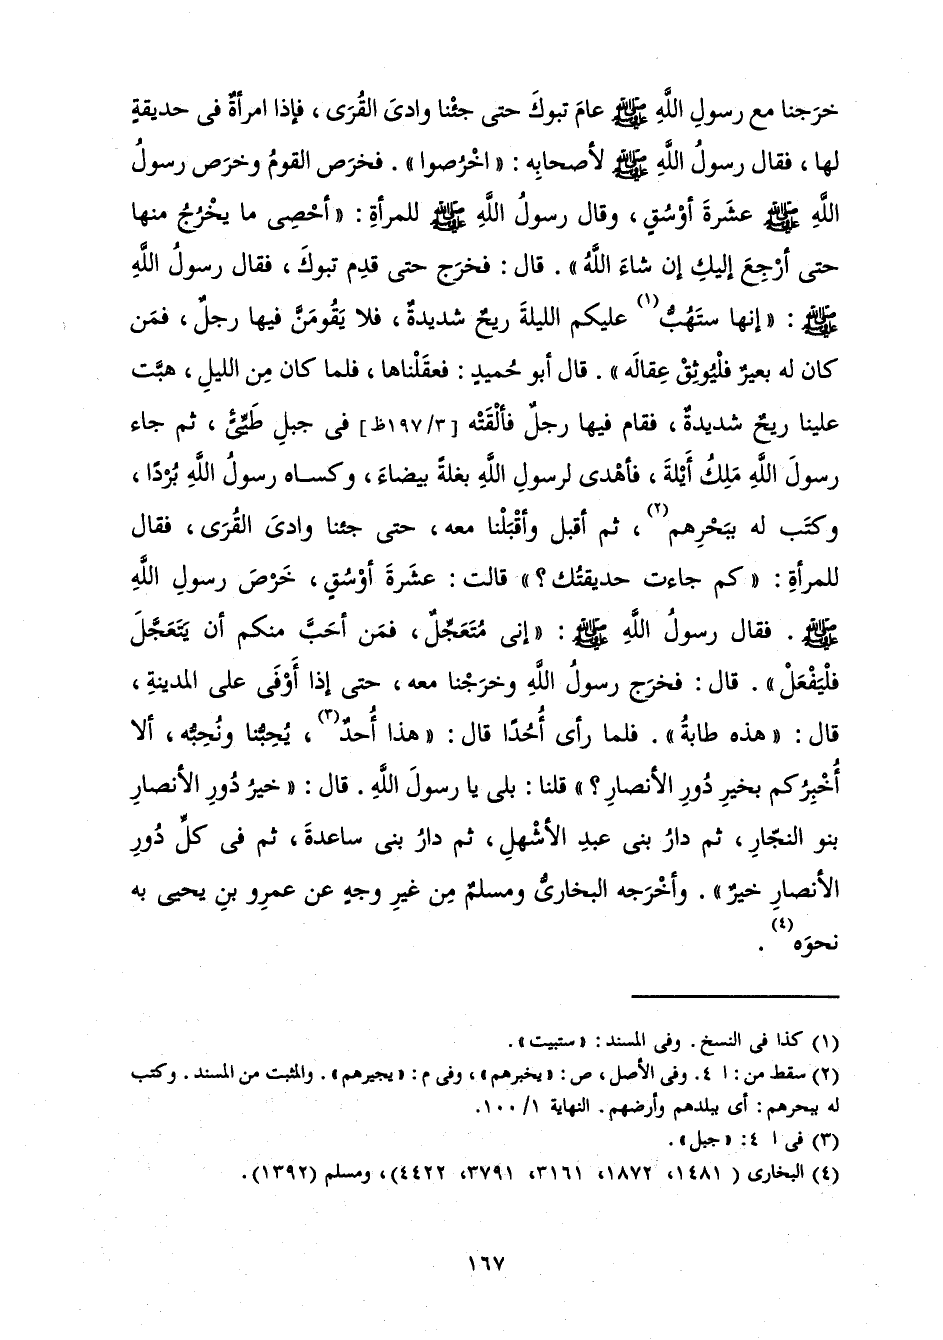 خرَجنا مع رسولِ اللَّهِ ﷺ عامَ تبوكَ حتى جئْنا وادىَ القُرَى ، فإذا امرأةٌ فى حديقةٍ
لها ، فقال رسولُ اللَّهِ ﷺ لأصحابِه : « اخْرُصوا » . فخرَص القومُ وخرَص رسولُ
اللَّهِ ﷺ عشَرةَ أوْسُقٍ ، وقال رسولُ اللَّهِ ﷺ للمرأةِ : « أحْصِى ما يخْرُجُ منها
حتى أرْجِعَ إليكِ إن شاءَ اللَّهُ » . قال : فخرَج حتى قدِم تبوكَ ، فقال رسولُ اللَّهِ
ﷺ : « إنها ستَهُبُّ(١) عليكم الليلةَ ريحٌ شديدةٌ ، فلا يَقُومَنَّ فيها رجلٌ ، فمَن
كان له بعيرٌ فلْيُوثِقْ عِقالَه » . قال أبو حُميدٍ : فعقَلْناها ، فلما كان مِن الليلِ ، هبَّت
علينا ريحٌ شديدةٌ ، فقام فيها رجلٌ فألْقَتْه [ ١٩٧/٣ظ ] فى جبلِ طَيِّئٍ ، ثم جاء
رسولَ اللَّهِ مَلِكُ أَيْلةَ ، فأهْدى لرسولِ اللَّهِ بغلةً بيضاءَ ، وكساه رسولُ اللَّهِ بُرْدًا ،
وكتَب له ببَحْرِهم(٢) ، ثم أقبل وأقْبَلْنا معه ، حتى جئنا وادىَ القُرَى ، فقال
للمرأةِ : « كم جاءت حديقتُك ؟ » قالت : عشَرةَ أوْسُقٍ ، خَرْصَ رسولِ اللَّهِ
ﷺ . فقال رسولُ اللَّهِ ﷺ : « إنى مُتَعَجِّلٌ ، فمَن أحَبَّ منكم أن يَتَعَجَّلَ
فلْيَفْعَلْ » . قال : فخرَج رسولُ اللَّهِ وخرَجْنا معه ، حتى إذا أَوْفَى على المدينةِ ،
قال : « هذه طابةُ » . فلما رأى أُحُدًا قال : « هذا أُحدٌ(٣) ، يُحِبُّنا ونُحِبُّه ، ألا
أُخْبِرُكم بخيرِ دُورِ الأنصارِ ؟ » قلنا : بلى يا رسولَ اللَّهِ . قال : « خيرُ دُورِ الأنصارِ
بنو النجّارِ ، ثم دارُ بنى عبدِ الأشْهلِ ، ثم دارُ بنى ساعدةَ ، ثم فى كلِّ دُورِ
الأنصارِ خيرٌ » . وأخْرَجه البخارىُّ ومسلمٌ مِن غيرِ وجهٍ عن عمرِو بنِ يحيى به
نحوَه(٤) .
(١) كذا فى النسخ . وفى المسند : «ستبيت» .
(٢) سقط من : ا ٤. وفى الأصل ، ص : «يخبرهم» ، وفى م : «يجيرهم» . والمثبت من المسند . وكتب
له ببحرهم : أى ببلدهم وأرضهم . النهاية ١٠٠/١.
(٣) فى ا ٤: «جبل» .
(٤) البخارى ( ١٤٨١، ١٨٧٢، ٣١٦١، ٣٧٩١، ٤٤٢٢) ، ومسلم (١٣٩٢) .
١٦٧